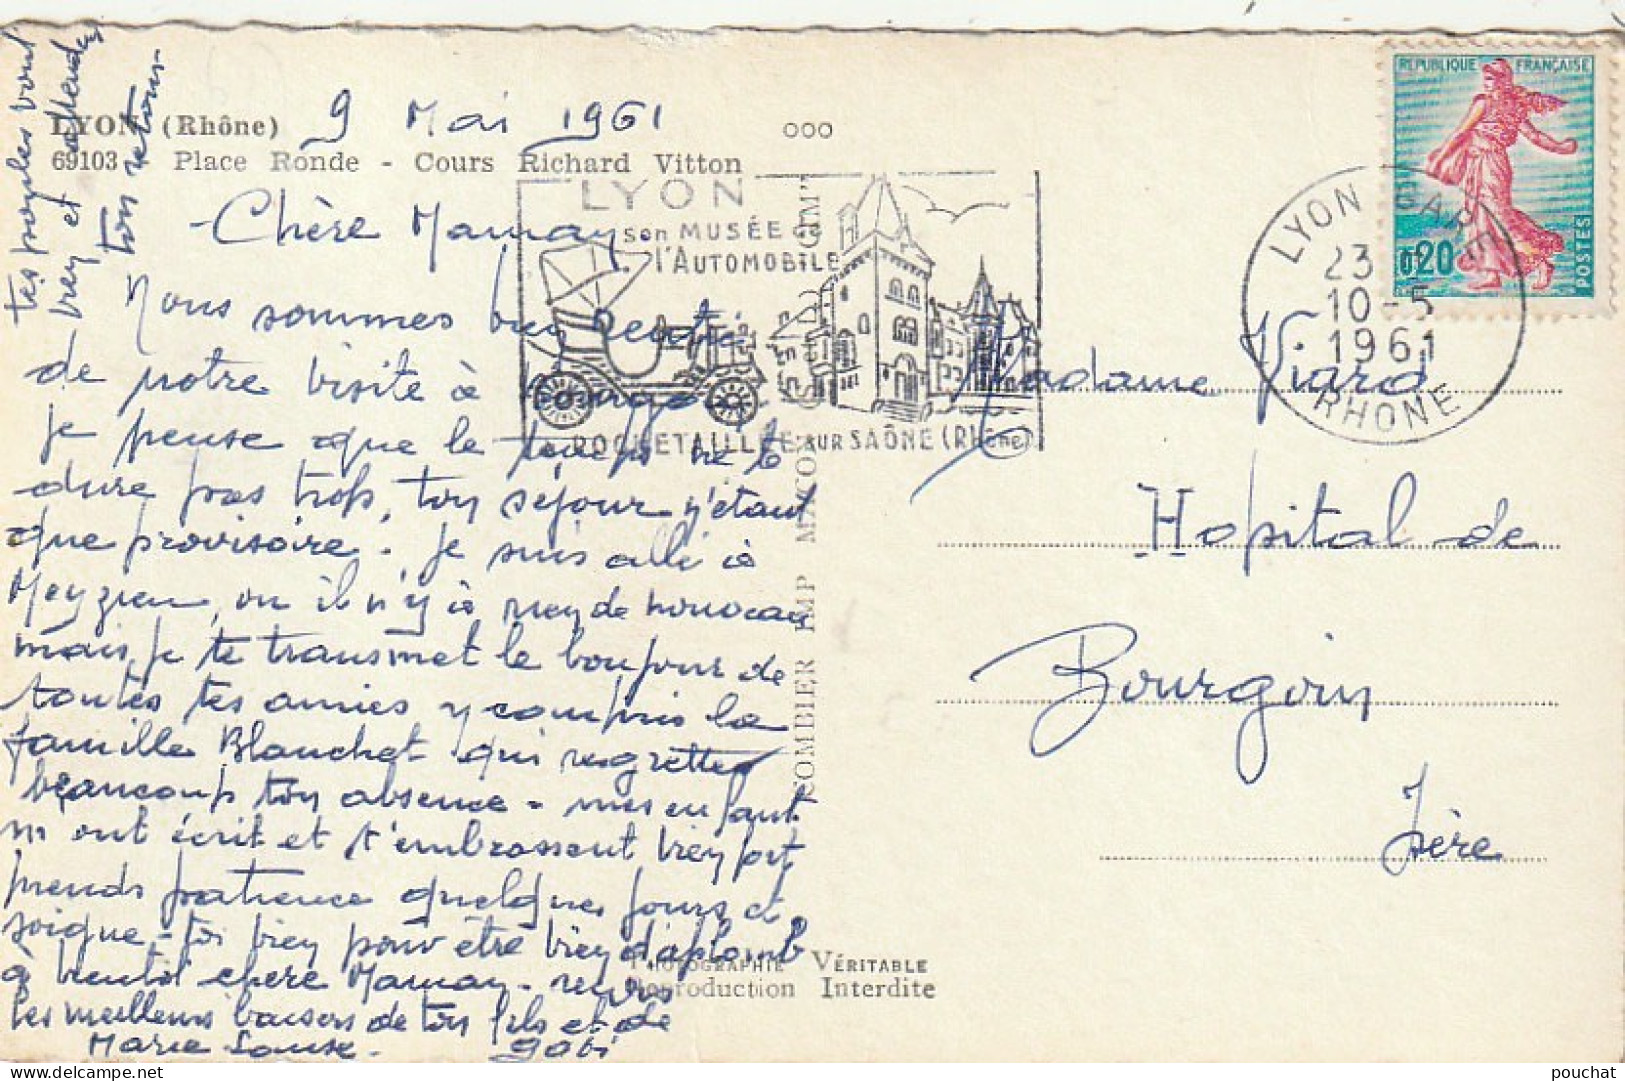 LYON (Rhône)
9 Mai 1961
ooo
69103 - Place Ronde - Cours Richard Vitton
Chère Maman,
Nous sommes bien
de notre visite à
je pense que le temps ne te
dure pas trop, ton séjour n'étant
que provisoire. Je suis allé à
Meyzieu, où il n'y a rien de nouveau
mais je te transmet le bonjour de
toutes tes amies y compris la
famille Blanchet qui regrette
beaucoup ton absence - mes enfants
m'ont écrit et t'embrassent bien fort
prends patience quelques jours et
soigne-toi bien pour être bien d'aplomb
à bientôt chère Maman - reçois
les meilleurs baisers de ton fils et de
Marie Louise - Gabi
tes poules vont
bien et attendent
ton retour -
LYON
son MUSÉE de
l'AUTOMOBILE
à ROCHETAILLEE sur SAÔNE (Rhône)
COMBIER IMP MACON
PHOTOGRAPHIE VÉRITABLE
Reproduction Interdite
REPUBLIQUE FRANÇAISE
0,20
POSTES
LYON GARE
23
10-5
1961
RHONE
Madame Viard
Hopital de
Bourgoin
Isère
pouchat